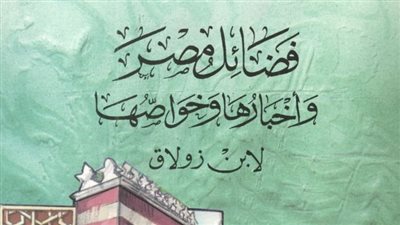 فَضَائِل مِصْرَ
وَأخْبَارُهَا وَخَوَاصُّهَا
لابن زولاق